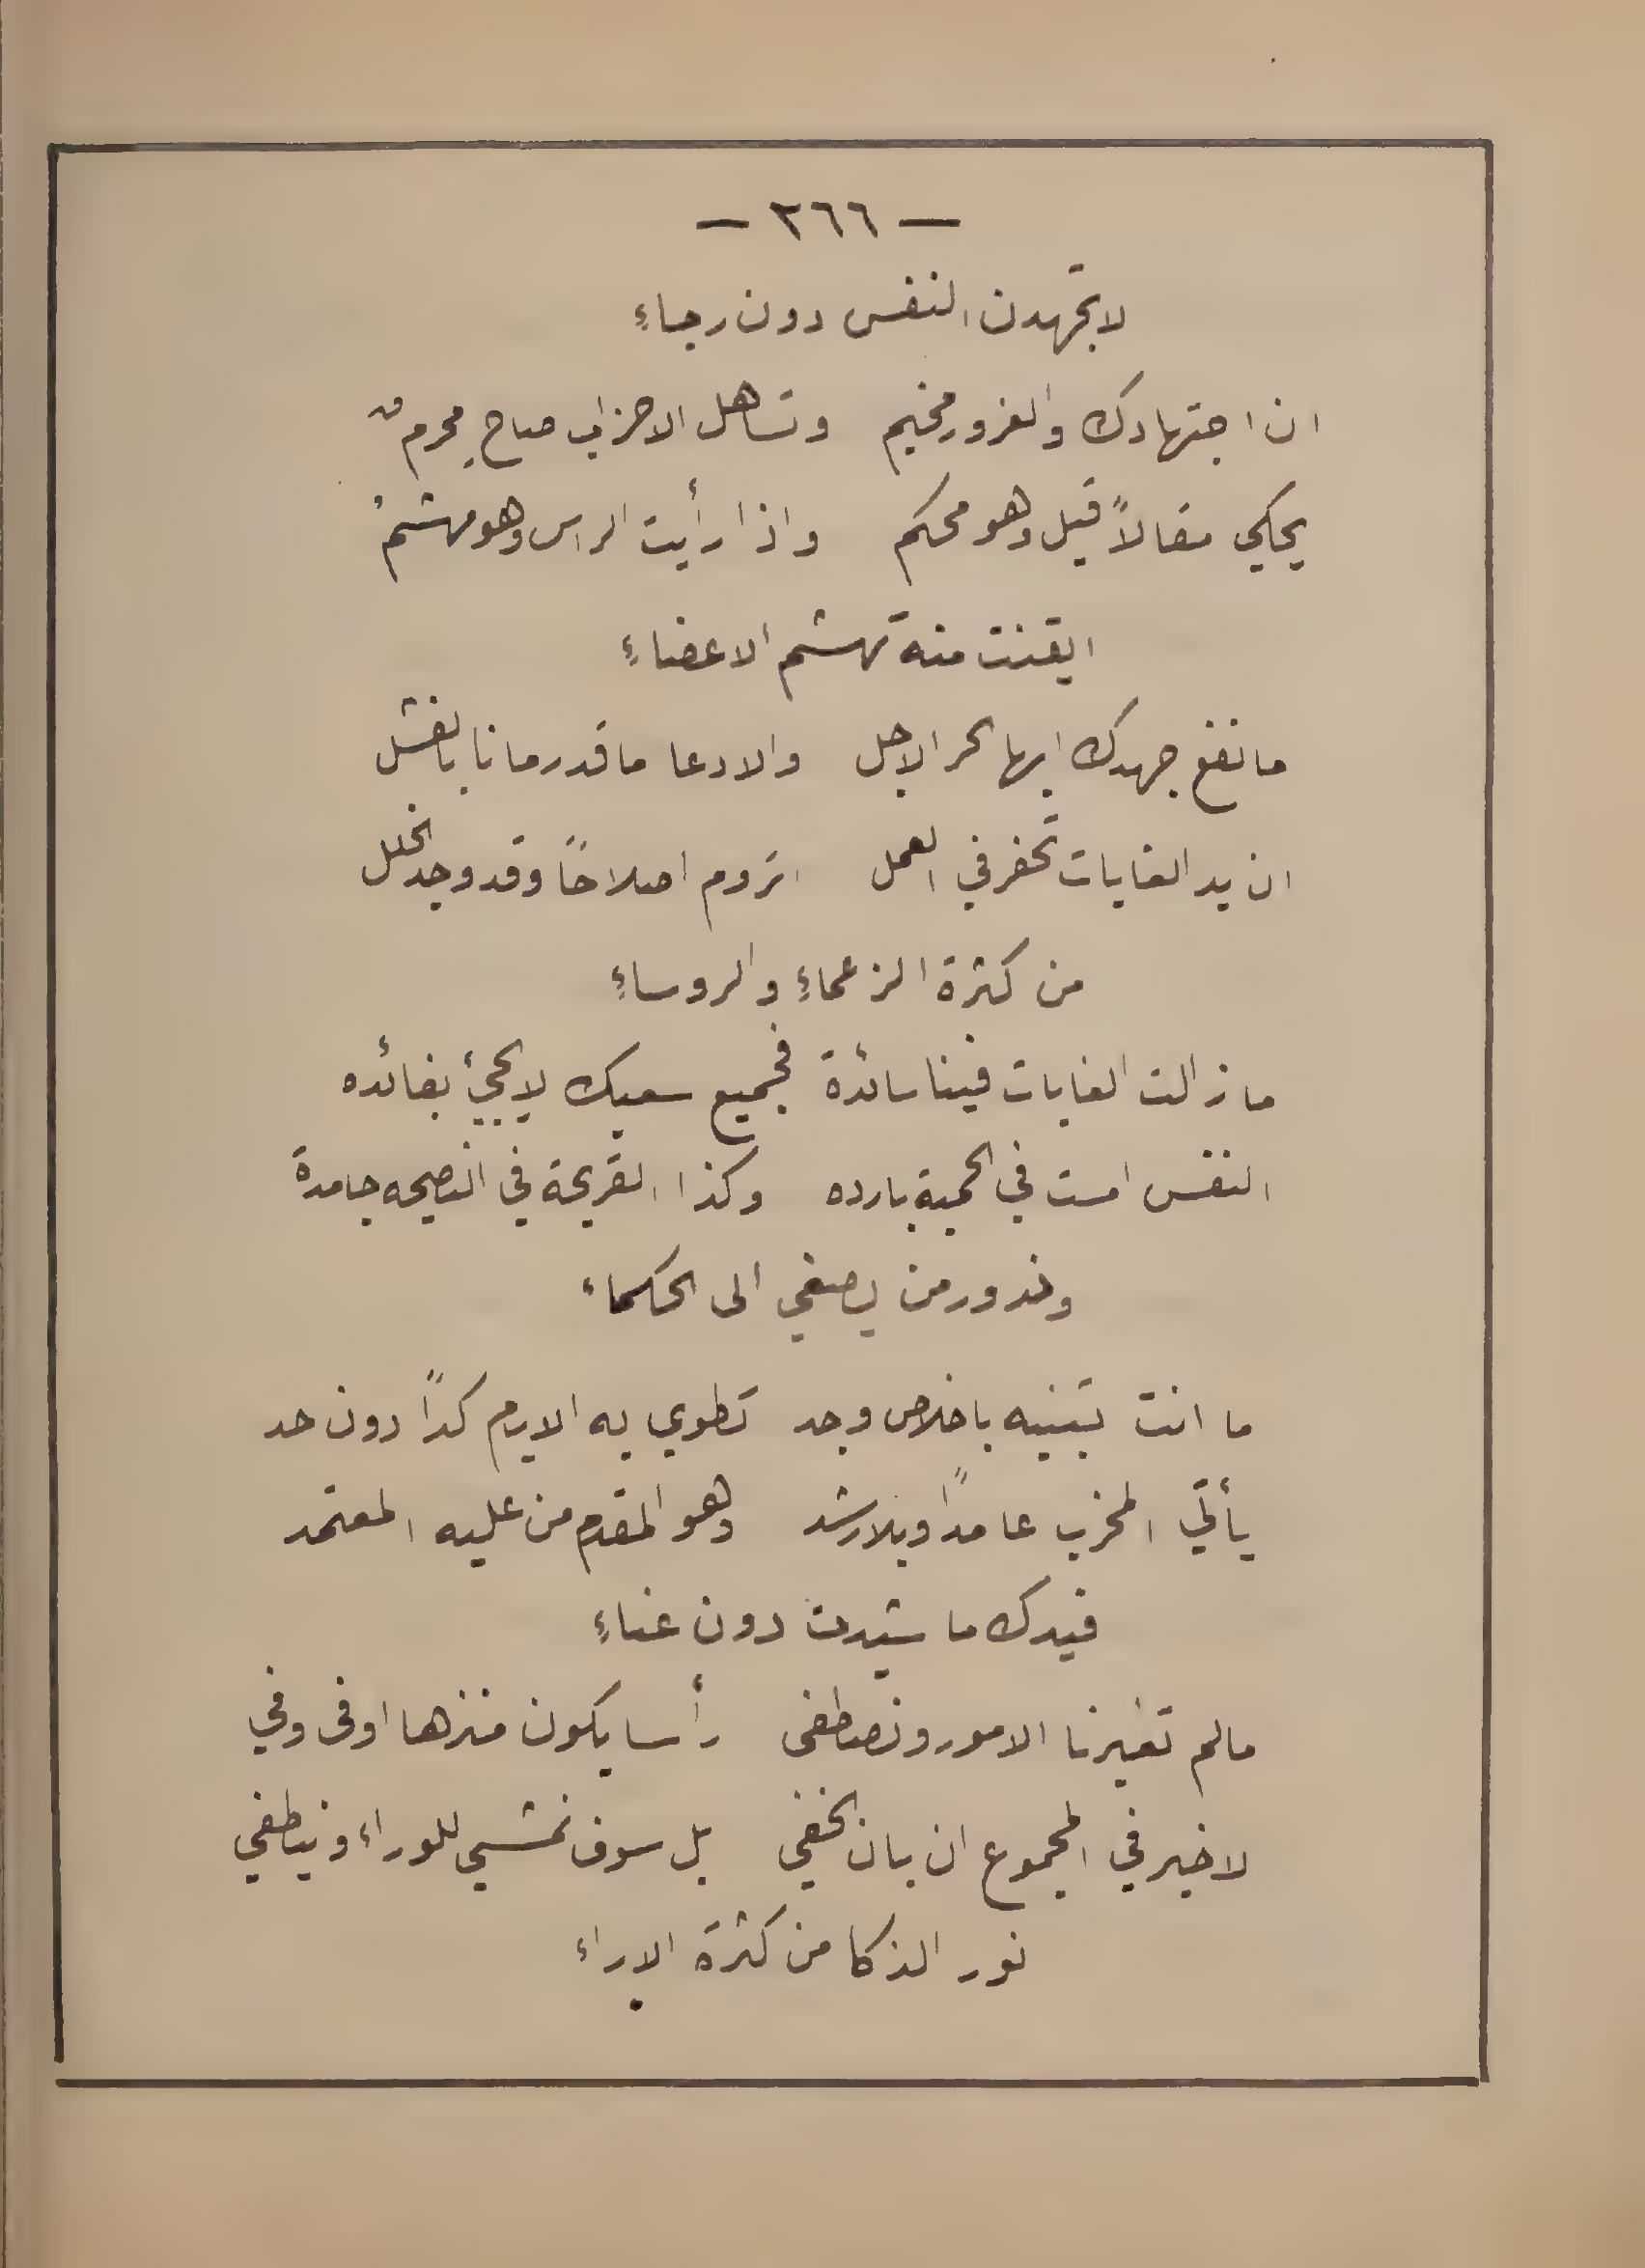 — ٢٦٦ —
لا تجهدن النفس دون رجاءِ
ان اجتهادك والغرور مخيم وتساهل الاحزاب صاح محرم
يحكي مقالاً قيل وهو محكم واذا رأيت الراس وهو مهشمُ
ايقنت منه تهشم الاعضاءِ
ما نفع جهدك ايها الحر الاجل والادعا ما قد رمانا بالفشل
ان يد الغايات تحفر في العمل اتروم اصلاحاً وقد وجد الخلل
من كثرة الزعماءِ والروساءِ
ما زالت الغايات فينا سائدة فجميع سعيك لا يجيئ بفائده
النفس امست في الحمية بارده وكذا القريحة في النصيحه جامدة
وندور من يصغي الى الحكماء
ما انت تبنيه باخلاص وجد تطوي به الايام كداً دون حد
يأتي المخرب عامداً وبلا رشد وهو المقدم من عليه المعتمد
فيدك ما شيدت دون عناءِ
مالم تغيرنا الامور ونصطفي رأسا يكون منزها اوفى وفي
لا خير في المجموع ان بان الخفي بل سوف نمشي للوراء وينطفي
نور الذكا من كثرة الاراء